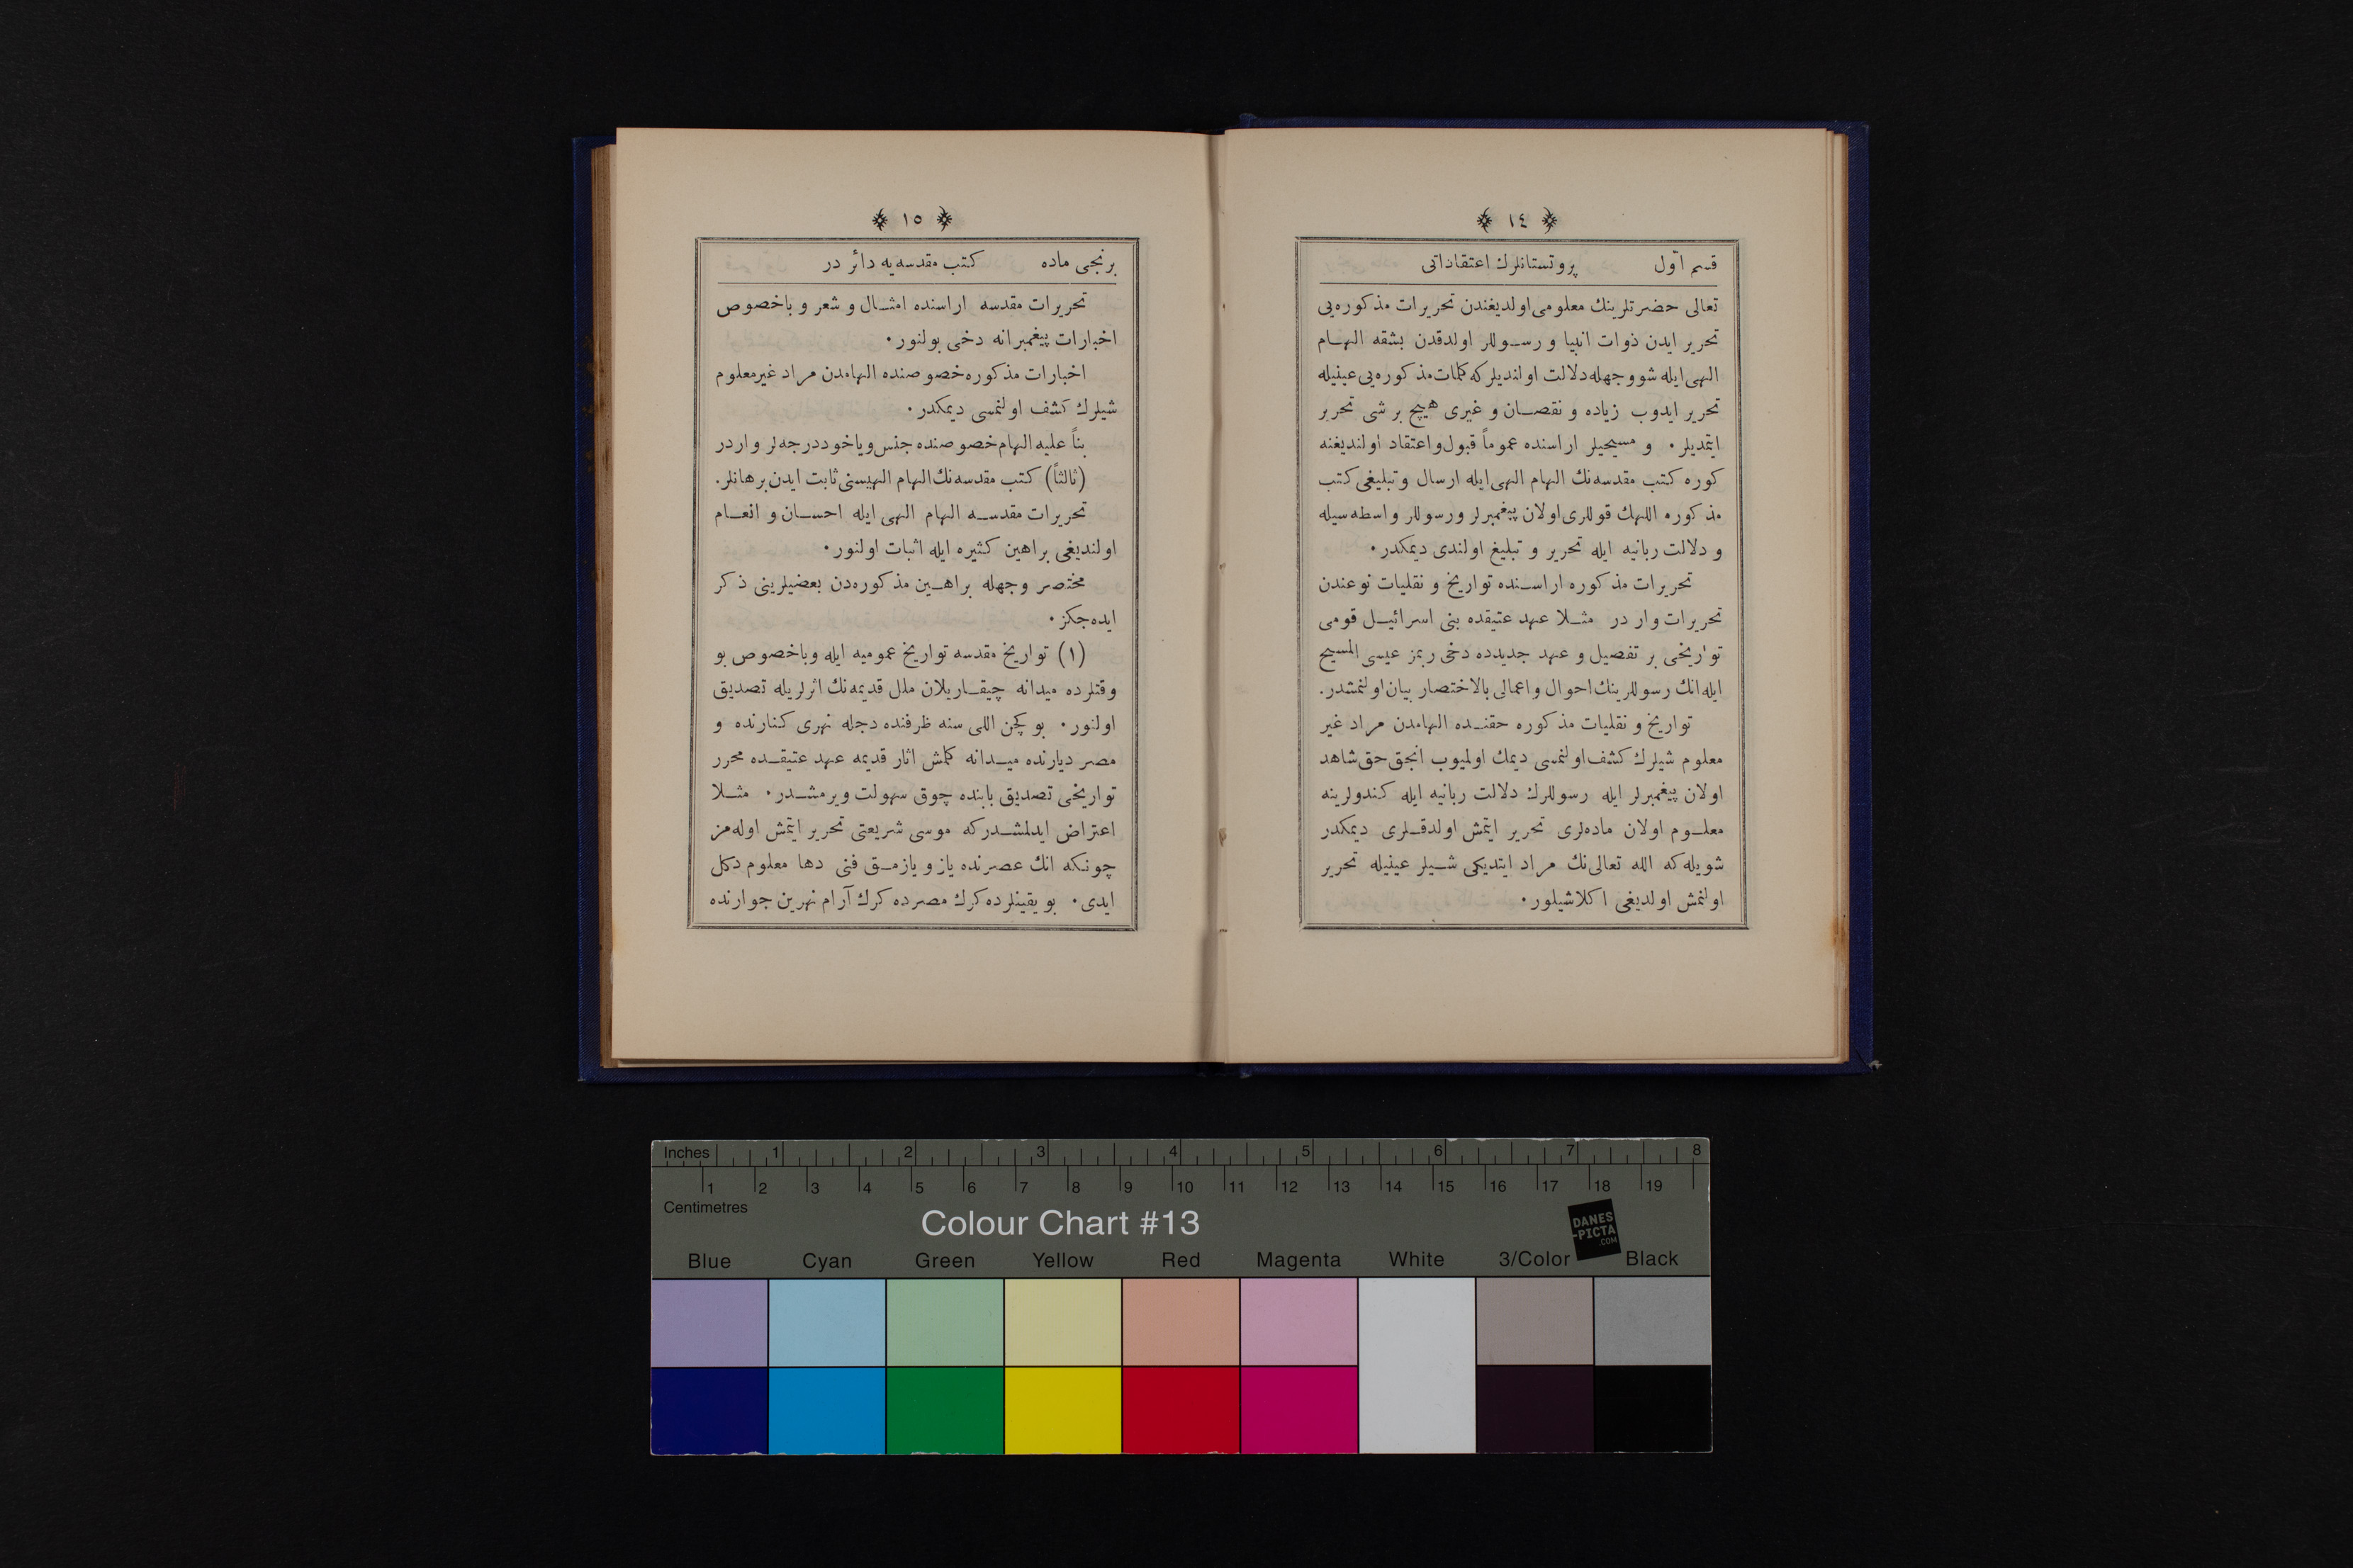 ﴿ ١٤ ﴾
قسم اوّل پروتستانلرك اعتقاداتی
تعالی حضرتلرینك معلومی اولدیغندن تحریرات مذكوره‌یی
تحریر ایدن ذوات انبیا و رسوللر اولدقدن بشقه الهام
الهی ایله شو وجهله دلالت اولندیلر كه كلمات مذكوره‌یی عینیله
تحریر ایدوب زیاده و نقصان و غیری هیچ بر شی تحریر
ایتمدیلر · و مسیحیلر اراسنده عموماً قبول و اعتقاد اولندیغنه
كوره كتب مقدسه‌نك الهام الهی ایله ارسال و تبلیغی كتب
مذكوره اللهك قوللری اولان پیغمبرلر و رسوللر واسطه‌سیله
و دلالت ربانیه ایله تحریر و تبلیغ اولندی دیمكدر ·
تحریرات مذكوره اراسنده تواریخ و نقلیات نوعندن
تحریرات وار در مثلا عهد عتیقده بنی اسرائیل قومی
تواریخی بر تفصیل و عهد جدیدده دخی ربمز عیسی المسیح
ایله انك رسوللرینك احوال و اعمالی بالاختصار بیان اولنمشدر.
تواریخ و نقلیات مذكوره حقنده الهامدن مراد غیر
معلوم شیلرك كشف اولنمسی دیمك اولمیوب انجق حق شاهد
اولان پیغمبرلر ایله رسوللرك دلالت ربانیه ایله كندولرینه
معلوم اولان ماده‌لری تحریر ایتمش اولدقلری دیمكدر
شویله كه الله تعالی‌نك مراد ایتدیكی شیلر عینیله تحریر
اولنمش اولدیغی اكلاشیلور ·
﴿ ١٥ ﴾
برنجی ماده كتب مقدسه‌یه دائر در
تحریرات مقدسه اراسنده امثال و شعر و باخصوص
اخبارات پیغمبرانه دخی بولنور ·
اخبارات مذكوره خصوصنده الهامدن مراد غیر معلوم
شیلرك كشف اولنمسی دیمكدر ·
بناً علیه الهام خصوصنده جنس و یاخود درجه‌لر وار در
(ثالثاً) كتب مقدسه‌نك الهام الهیسنی ثابت ایدن برهانلر.
تحریرات مقدسه الهام الهی ایله احسان و انعام
اولندیغی براهین كثیره ایله اثبات اولنور ·
مختصر وجهله براهین مذكوره‌دن بعضیلرینی ذكر
ایده‌جكز ·
(١) تواریخ مقدسه تواریخ عمومیه ایله و باخصوص بو
وقتلرده میدانه چیقاریلان ملل قدیمه‌نك اثرلریله تصدیق
اولنور · بو كچن اللی سنه ظرفنده دجله نهری كنارنده و
مصر دیارنده میدانه كلمش اثار قدیمه عهد عتیقده محرر
تواریخی تصدیق بابنده چوق سهولت ویرمشدر · مثلا
اعتراض ایدلمشدر كه موسی شریعتی تحریر ایتمش اوله‌مز
چونكه انك عصرنده یاز و یازمق فنی دها معلوم دكل
ایدی · بو یقینلرده كرك مصرده كرك آرام نهرین جوارنده
Inches 1 2 3 4 5 6 7 8
1 2 3 4 5 6 7 8 9 10 11 12 13 14 15 16 17 18 19
Centimetres
Colour Chart #13
DANES
-PICTA
.COM
Blue Cyan Green Yellow Red Magenta White 3/Color Black